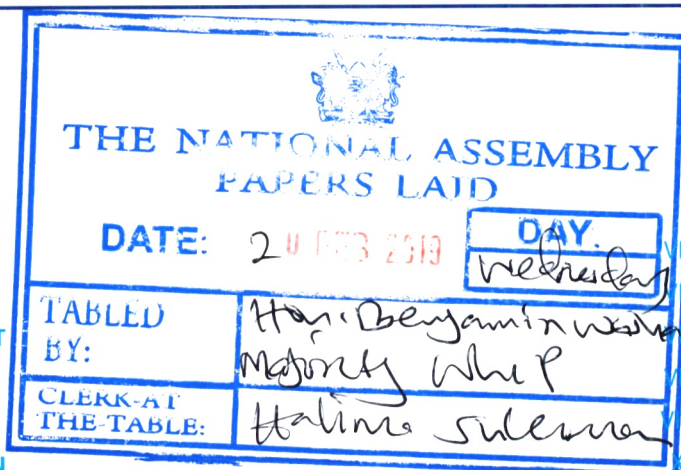 THE NATIONAL ASSEMBLY
PAPERS LAID
DATE: 20 FEB 2019
DAY.
Wednesday
TABLED BY:
Hon. Benjamin
Majority Whip
CLERK-AT THE-TABLE:
Halima Suleiman